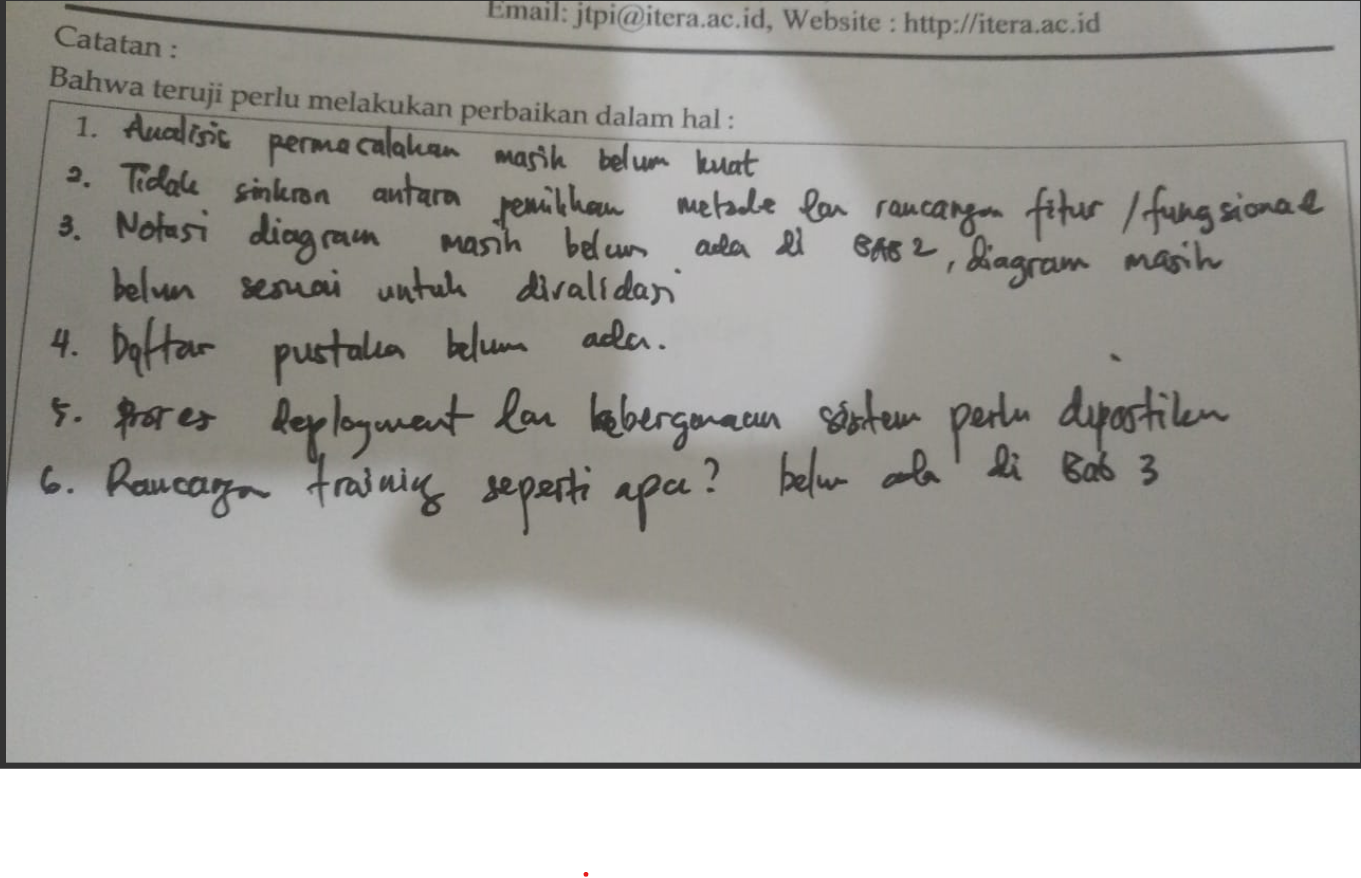 Email: jtpi@itera.ac.id, Website : http://itera.ac.id
Catatan :
Bahwa teruji perlu melakukan perbaikan dalam hal :
1. Analisis permasalahan masih belum kuat
2. Tidak sinkron antara pemilihan metode dan rancangan fitur / fungsional
3. Notasi diagram masih belum ada di BAB 2, diagram masih
belum sesuai untuk divalidasi
4. Daftar pustaka belum ada.
5. Proses deployment dan kebergunaan sistem perlu dipastikan
6. Rancangan training seperti apa? belum ada di Bab 3